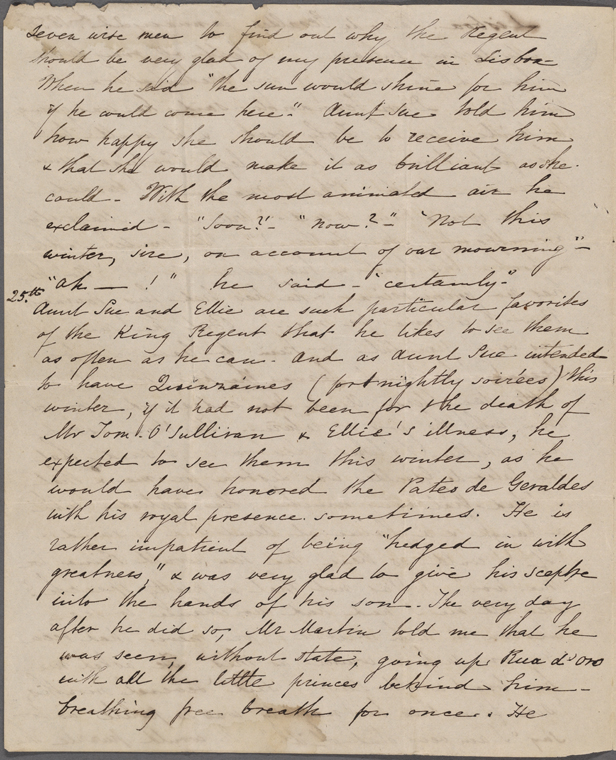 seven wise men to find out why the Regent
should be very glad of my presence in Lisboa -
When he said "the sun would shine for him
if he would come here." Aunt Sue told him
how happy she should be to receive him
& that she would make it as brilliant as she
could - With the most animated air he
exclaimed - "Soon?" - "now?" - "Not this
winter, sire, on account of our mourning" -
"ah — !" he said - "certainly."
25th Aunt Sue and Ellie are such particular favorites
of the King Regent that he likes to see them
as often as he can. And as Aunt Sue intended
to have Quinzaines (fortnightly soirées) this
winter, if it had not been for the death of
Mr Tom O'Sullivan & Ellie's illness, he
expected to see them this winter, as he
would have honored the Pateo de Geraldes
with his royal presence sometimes. He is
rather impatient of being "hedged in with
greatness," & was very glad to give his sceptre
into the hands of his son. The very day
after he did so, Mr Martin told me that he
was seen, without state, going up Rua d'oro
with all the little princes behind him -
breathing free breath for once. He